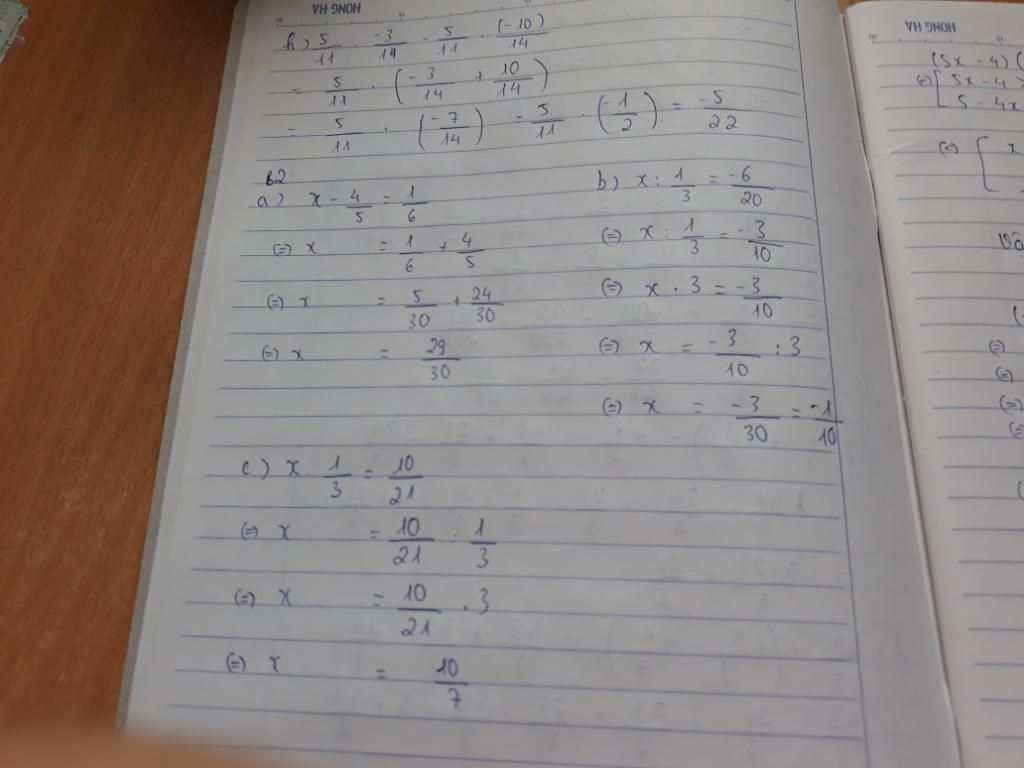 HONG HA
h) 5/11 · -3/14 - 5/11 · (-10)/14
= 5/11 · (-3/14 + 10/14)
= 5/11 · (-7/14) = 5/11 · (-1/2) = -5/22
B2:
a) x - 4/5 = 1/6
(=) x = 1/6 + 4/5
(=) x = 5/30 + 24/30
(=) x = 29/30
b) x : 1/3 = -6/20
(=) x : 1/3 = -3/10
(=) x · 3 = -3/10
(=) x = -3/10 : 3
(=) x = -3/30 = -1/10
c) x · 1/3 = 10/21
(=) x = 10/21 : 1/3
(=) x = 10/21 · 3
(=) x = 10/7
HONG HA
(5x - 4) (
(=) [ 5x - 4
5 - 4x
(=) x
(=)
(=)
(=)
(=)